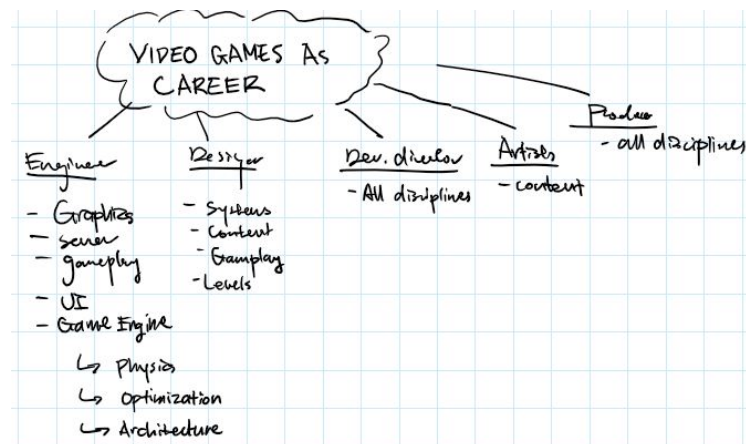 VIDEO GAMES AS
CAREER
Engineer
- Graphics
- server
- gameplay
- UI
- Game Engine
↳ Physics
↳ Optimization
↳ Architecture
Designer
- Systems
- Content
- Gameplay
- Levels
Dev. director
- All disciplines
Artists
- content
Producer
- all disciplines